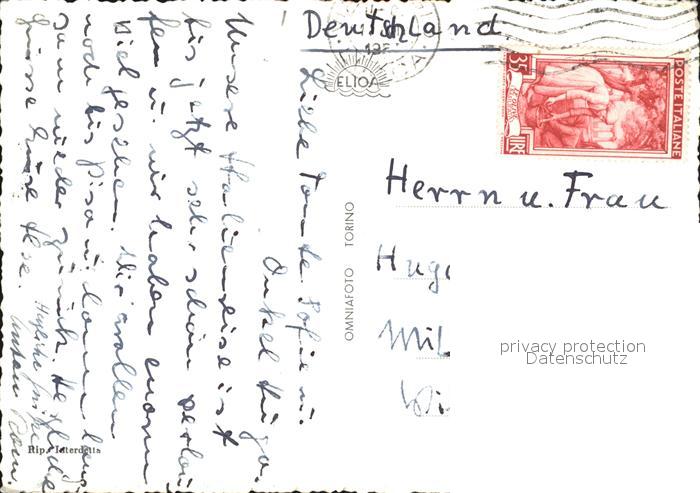 Deutschland
35
LIRE
POSTE ITALIANE
ELIOS
Liebe Tante Sofie u.
Onkel Hugo.
Unsere Italienreise ist
bis jetzt sehr schön verlau
fen u. wir haben enorm
viel gesehen. Wir wollen
noch bis Pisa u. dann lang
sam wieder zurück. Herzliche
Grüsse Eure Ilse.
Herzliche Grüße
OMNIAFOTO TORINO
Herrn u. Frau
Hug
Mil
Wi
privacy protection
Datenschutz
Rip. Interdetta